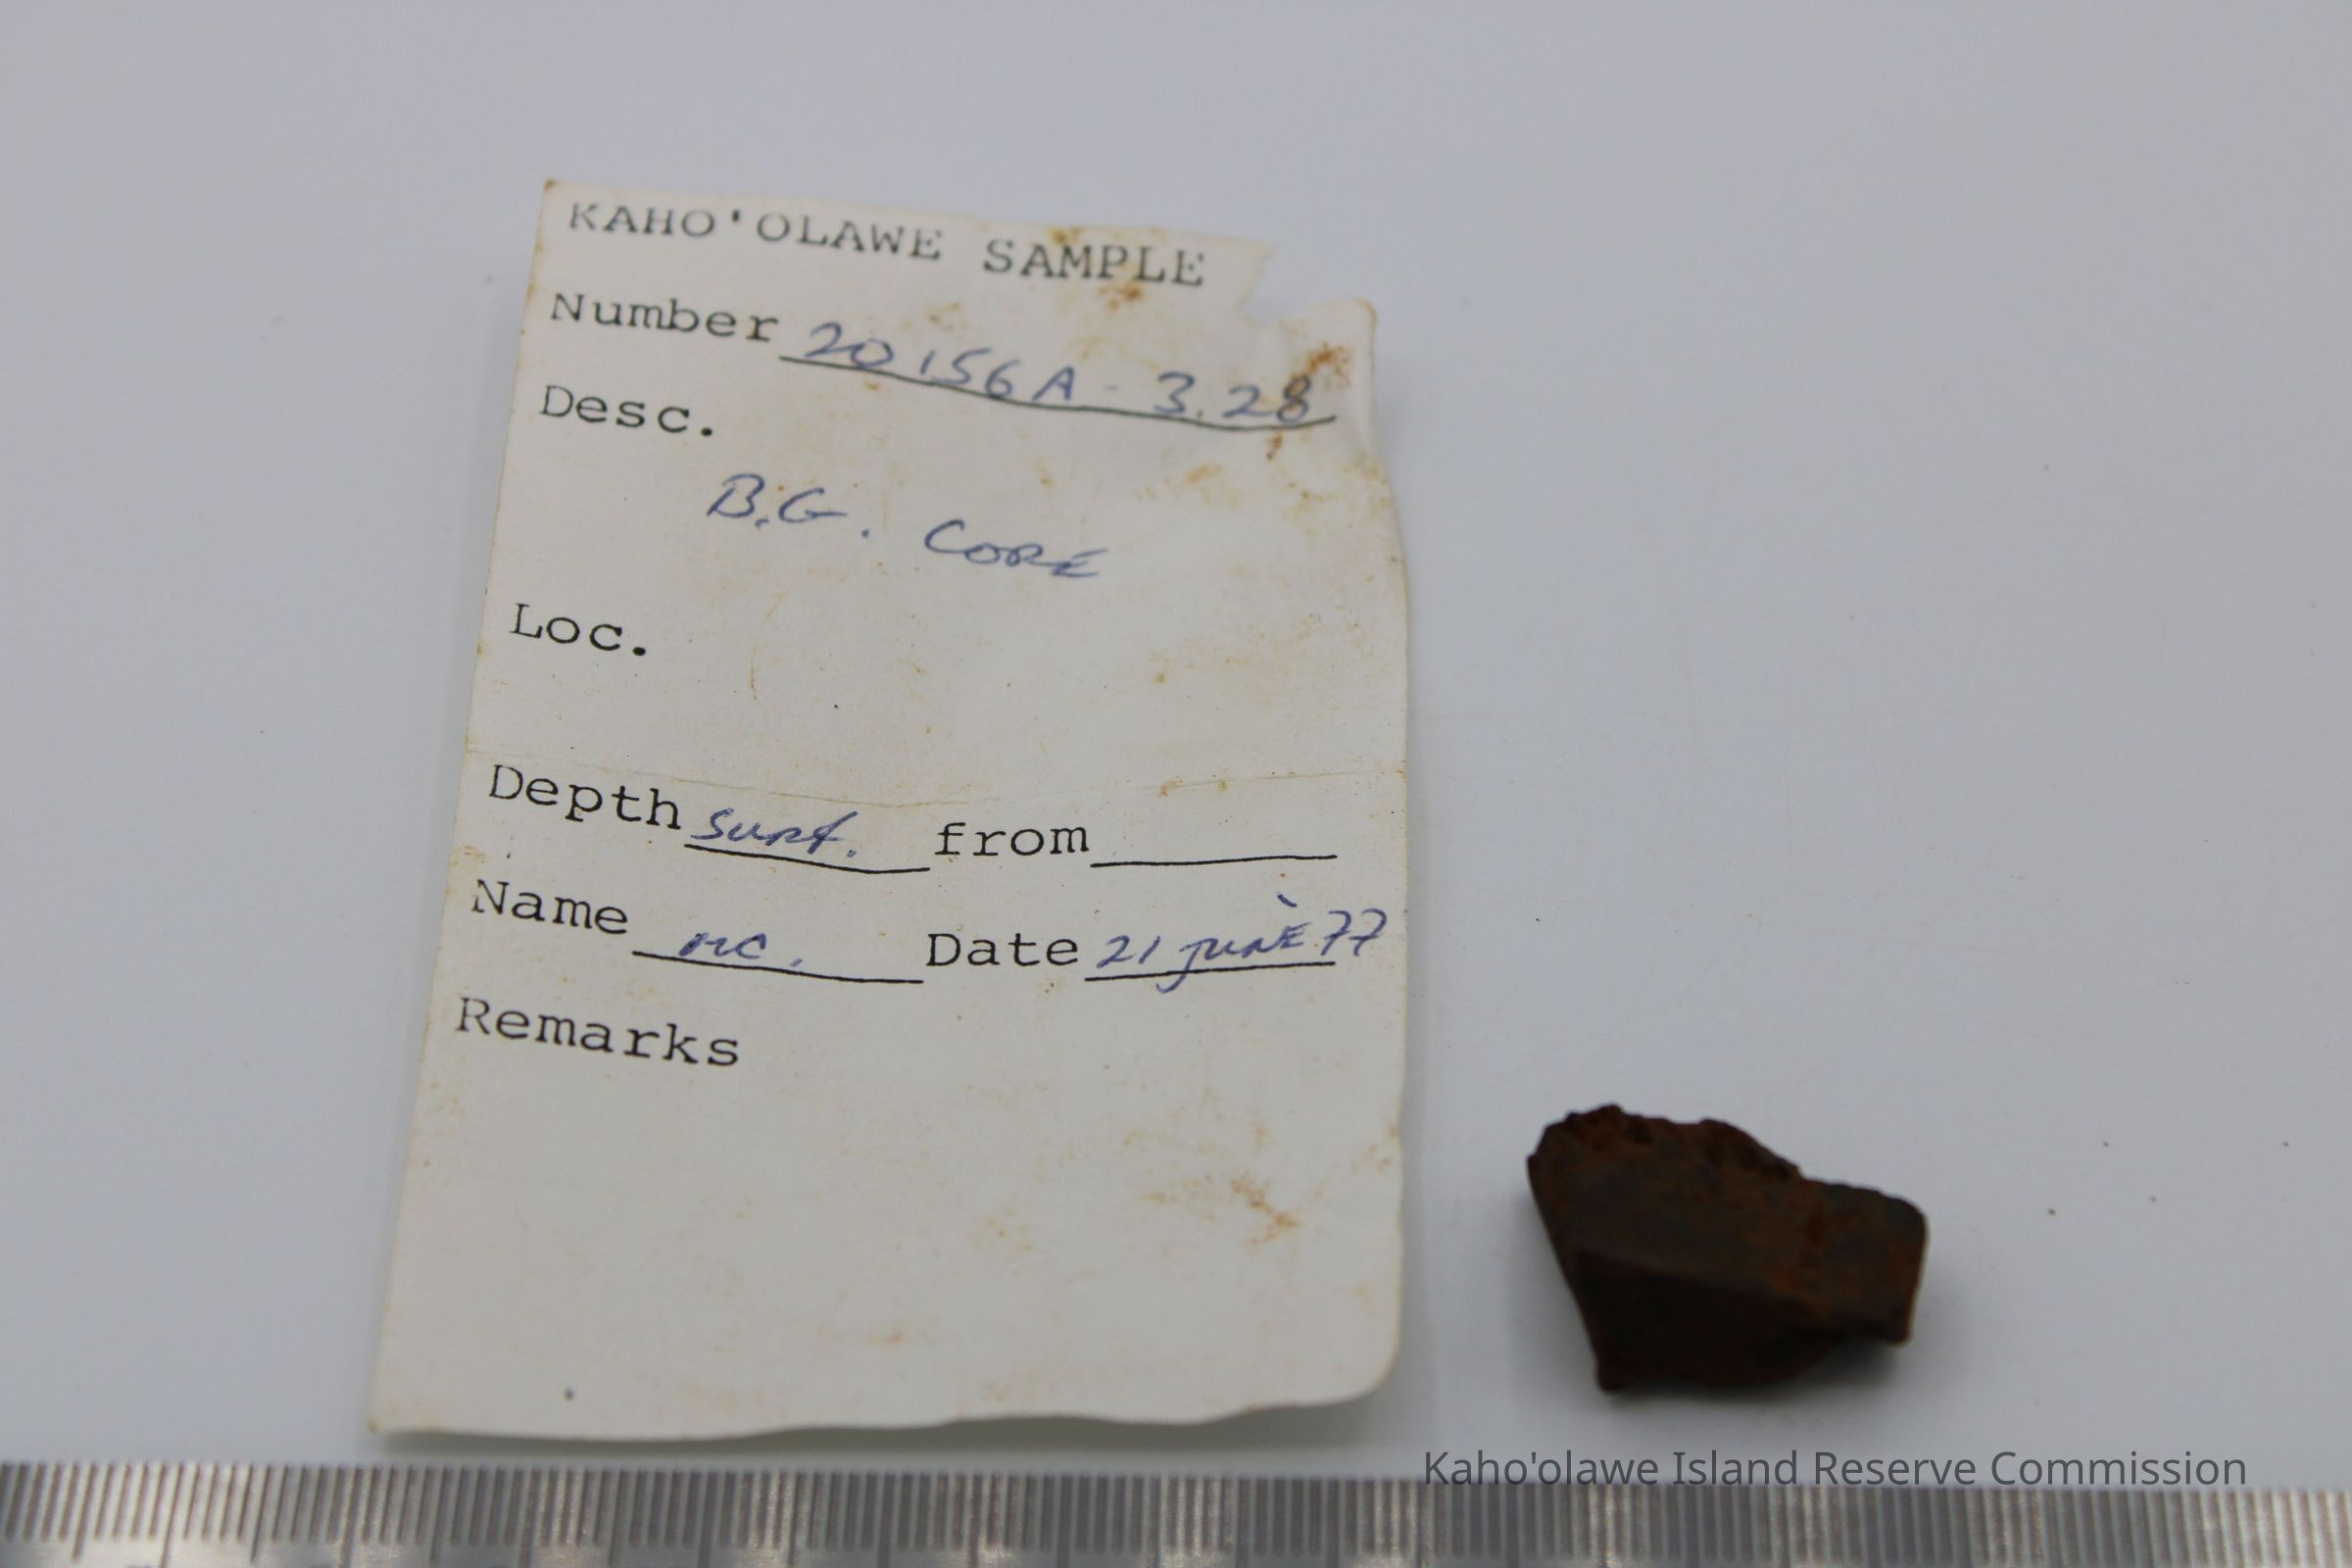 KAHO'OLAWE SAMPLE
Number 20156A - 3.28
Desc.
B.G. CORE
Loc.
Depth surf. from
Name MC. Date 21 JUNE 77
Remarks
Kaho'olawe Island Reserve Commission